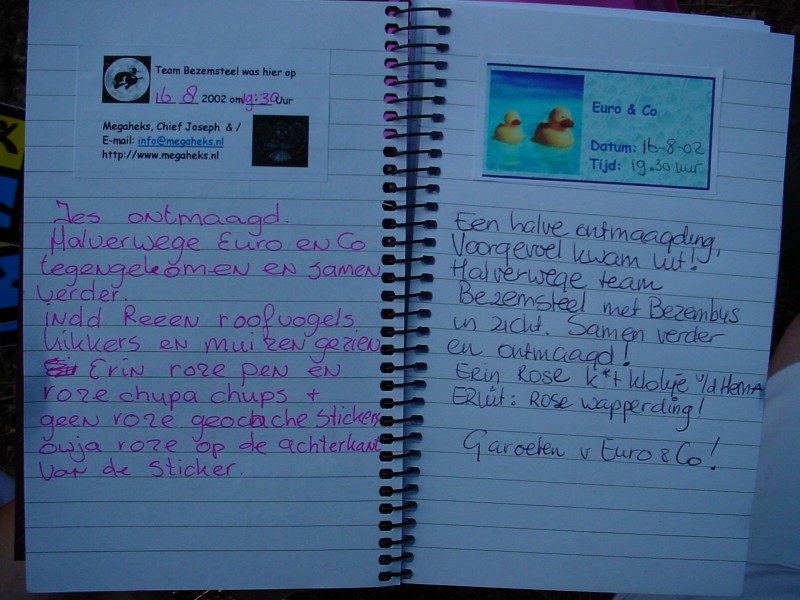 Team Bezemsteel was hier op
16 8 2002 om 19:30 uur
Megaheks, Chief Joseph & /
E-mail: info@megaheks.nl
http://www.megaheks.nl
Jes ontmaagd.
Halverwege Euro en Co
tegengekomen en samen
verder.
indd Reeen roofvogels
kikkers en muizen gezien
Erin roze pen en
roze chupa chups +
geen roze geocache stickers
owja roze op de achterkant
van de sticker.
Euro & Co
Datum: 16-8-02
Tijd: 19.30 uur
Een halve ontmaagding,
Voorgevoel kwam uit!
Halverwege team
Bezemsteel met Bezembus
in zicht. Samen verder
en ontmaagd!
Erin Rose k*+ klolije v/d Hema
ERuit: Rose wapperding!
Garoeten v Euro & Co!